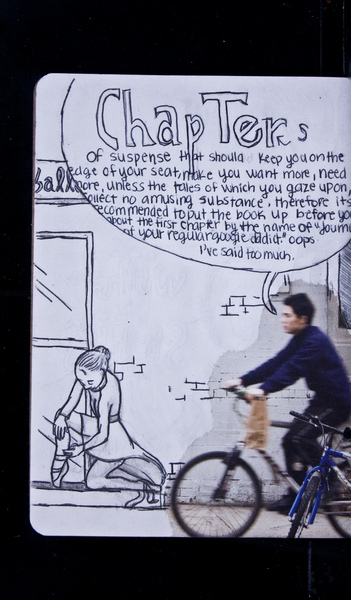 ChapTers
Of suspense that should keep you on the
edge of your seat, make you want more, need
more, unless the tales of which you gaze upon,
collect no amusing substance, therefore its
recommended to put the book up before you
about the first chapter by the name of "Journ
of your regular google addict." oops
I've said too much.
ball